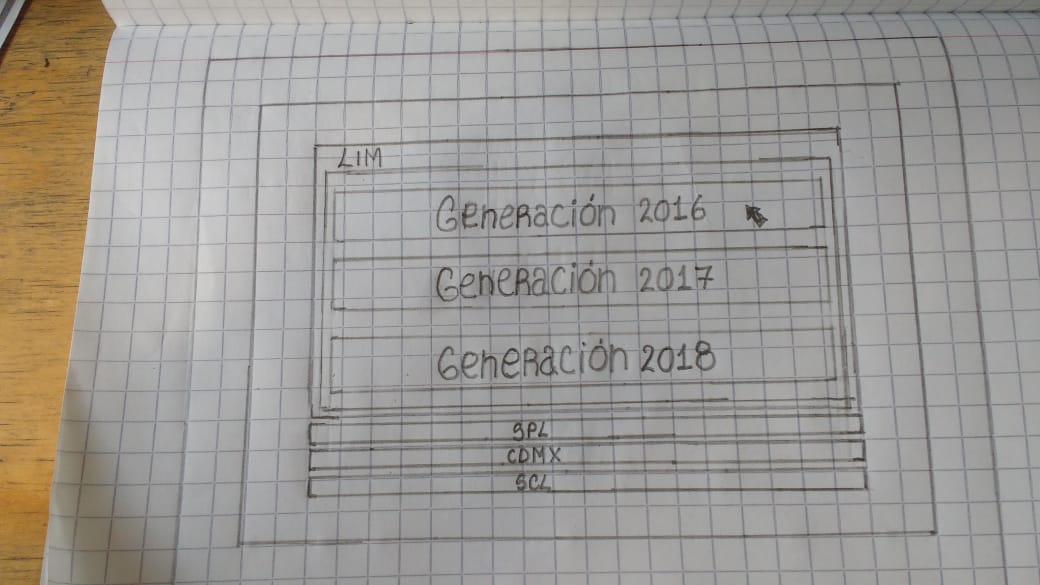 LIM
Generación 2016
Generación 2017
Generación 2018
SPL
CDMX
SCL